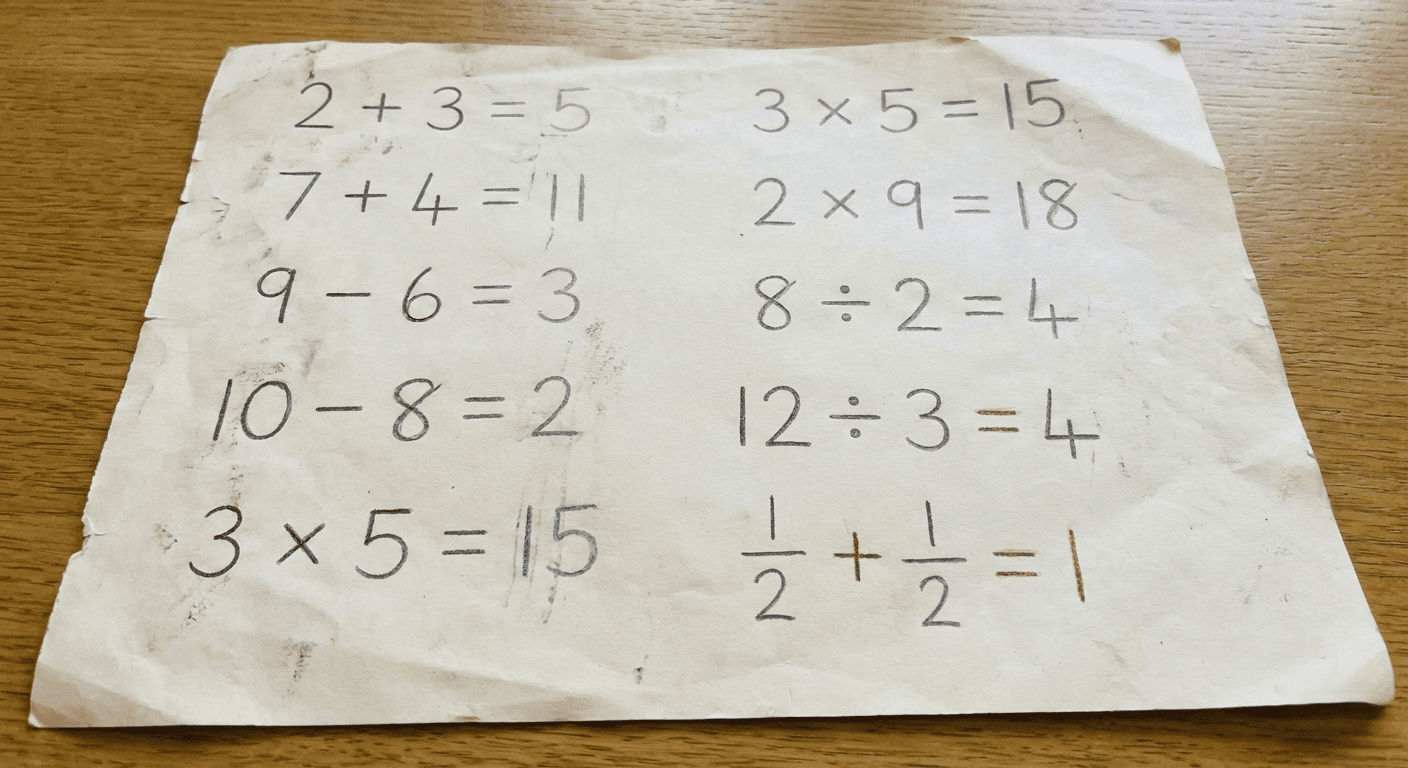 2 + 3 = 5
7 + 4 = 11
9 − 6 = 3
10 − 8 = 2
3 × 5 = 15
3 × 5 = 15
2 × 9 = 18
8 ÷ 2 = 4
12 ÷ 3 = 4
1/2 + 1/2 = 1